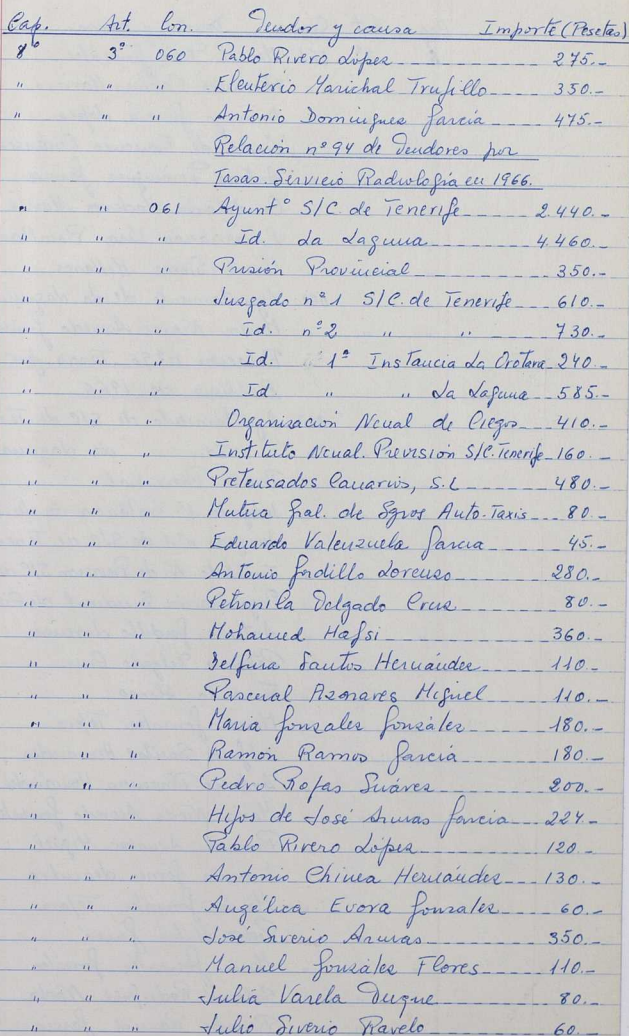 Cap. Art. Con. Deudor y causa Importe (Pesetas)
8º 3º 060 Pablo Rivero López 275.-
" " " Eleuterio Marichal Trujillo 350.-
" " " Antonio Domínguez García 475.-
Relación nº 94 de deudores por
Tasas. Servicio Radiología en 1966.
" " 061 Ayuntº S/C. de Tenerife 2.440.-
" " " Id. La Laguna 4.460.-
" " " Prisión Provincial 350.-
" " " Juzgado nº 1 S/C. de Tenerife 610.-
" " " Id. nº 2 " " 730.-
" " " Id. 1ª Instancia La Orotava 240.-
" " " Id " " La Laguna 585.-
" " " Organización Ncual de Ciegos 410.-
" " " Instituto Ncual. Previsión S/C. Tenerife 160.-
" " " Pretensados Canarios, S.L 480.-
" " " Mutua Gral. de Sgros Auto-Taxis 80.-
" " " Eduardo Valenzuela García 45.-
" " " Antonio Gordillo Lorenzo 280.-
" " " Petronila Delgado Cruz 80.-
" " " Mohamed Hafsi 360.-
" " " Delfina Santos Hernández 110.-
" " " Pascual Aznares Miguel 110.-
" " " María González González 180.-
" " " Ramón Ramos García 180.-
" " " Pedro Rojas Suárez 200.-
" " " Hijos de José Armas García 224.-
" " " Pablo Rivero López 120.-
" " " Antonio Chinea Hernández 130.-
" " " Angélica Evora González 60.-
" " " José Siverio Armas 350.-
" " " Manuel González Flores 110.-
" " " Julia Varela Duque 80.-
" " " Julio Siverio Ravelo 60.-